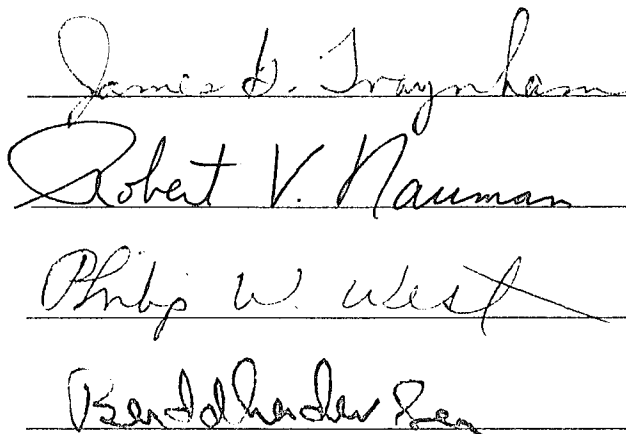 James G. Traynham
Robert V. Nauman
Philip W. West
Buddhadev Sen